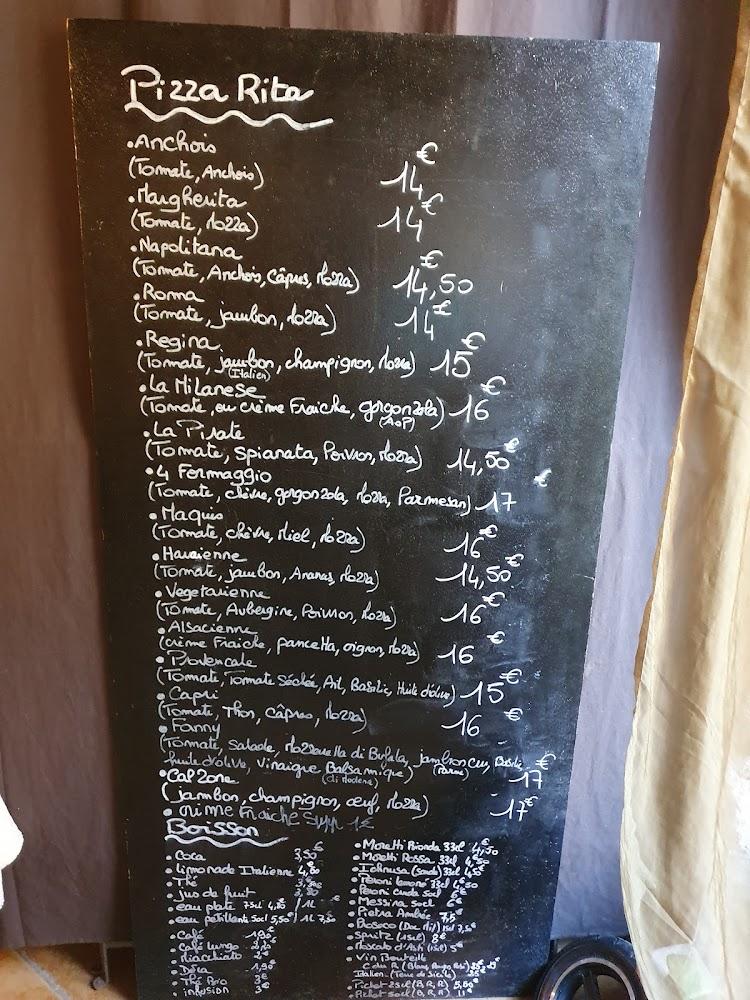 Pizza Rita
• Anchois
(Tomate, Anchois) 14€
• Margherita
(Tomate, Mozza) 14€
• Napolitana
(Tomate, Anchois, Câpres, Mozza) 14,50€
• Roma
(Tomate, jambon, Mozza) 14€
• Regina
(Tomate, jambon, champignon, Mozza) 15€
(Italien)
• La Milanese
(Tomate, ou crème Fraiche, gorgonzola) 16€
(AOP)
• La Pirate
(Tomate, Spianata, Poivron, Mozza) 14,50€
• 4 Formaggio
(Tomate, chèvre, gorgonzola, Mozza, Parmesan) 17€
• Maquis
(Tomate, chèvre, Miel, Mozza) 16€
• Hawaienne
(Tomate, jambon, Ananas, Mozza) 14,50€
• Vegetarienne
(Tomate, Aubergine, Poivron, Mozza) 16€
• Alsacienne
(crème Fraiche, pancetta, oignon, Mozza) 16€
• Provencale
(Tomate, Tomate Séchée, Ail, Basilic, Huile d'olive) 15€
• Capri
(Tomate, Thon, Câpres, Mozza) 16€
• Fanny
(Tomate, Salade, Mozzarella di Bufala, jambon cru, Basilic,
huile d'olive, Vinaigre Balsamique) (Parme) 17€
(di Modena)
• Calzone
(jambon, champignon, œuf, Mozza) 17€
• crème Fraiche Supp 1€
Boisson
• Coca 3,50€
• Limonade Italienne 4,80
• Thé
• jus de fruit
• eau plate
• eau petillante 50cl 5,50 / 1L 7,50
• Café 1,90€
• Café Lungo
• Macchiato
• Déca 1,90
• Thé
• infusion 3€
• Moretti Bionda 33cl 4,50€
• Moretti Rossa 33cl 4,50
• Ichnusa 33cl
• Peroni 33cl
• Peroni 50cl
• Messina 50cl 6€
• Pietra Ambrée 7,5
• Prosecco
• Spritz 8€
• Moscato d'Asti 5€
• Vin Bouteille
Italien
• Pichet 25cl (B, R, R)
• Pichet 50cl (B, R, R) 11€